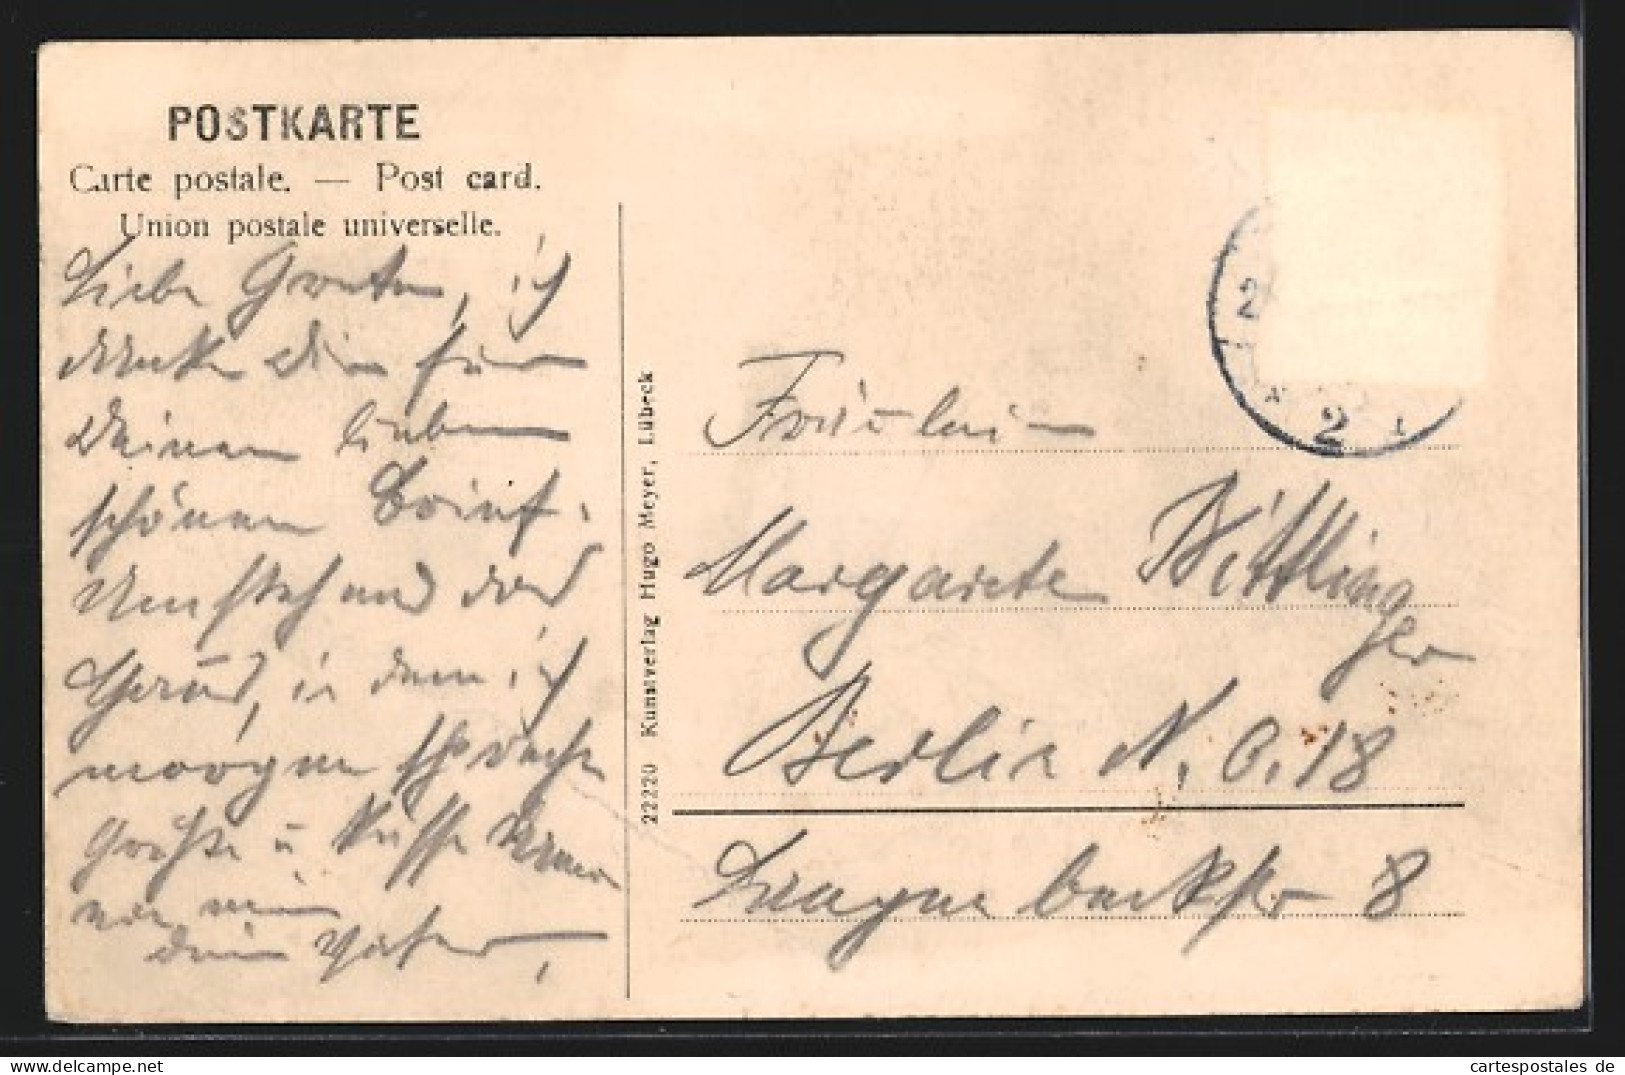 POSTKARTE
Carte postale. — Post card.
Union postale universelle.
Liebe Greten, ich
danke Dir für
Deinen lieben
schönen Brief.
Umstehend das
in dem ich
morgen
Grüße u Küsse
dein Vater,
22220 Kunstverlag Hugo Meyer, Lübeck
2
2
Fräulein
Margarete Bittlinger
Berlin N. O. 18
8
cartespostales de